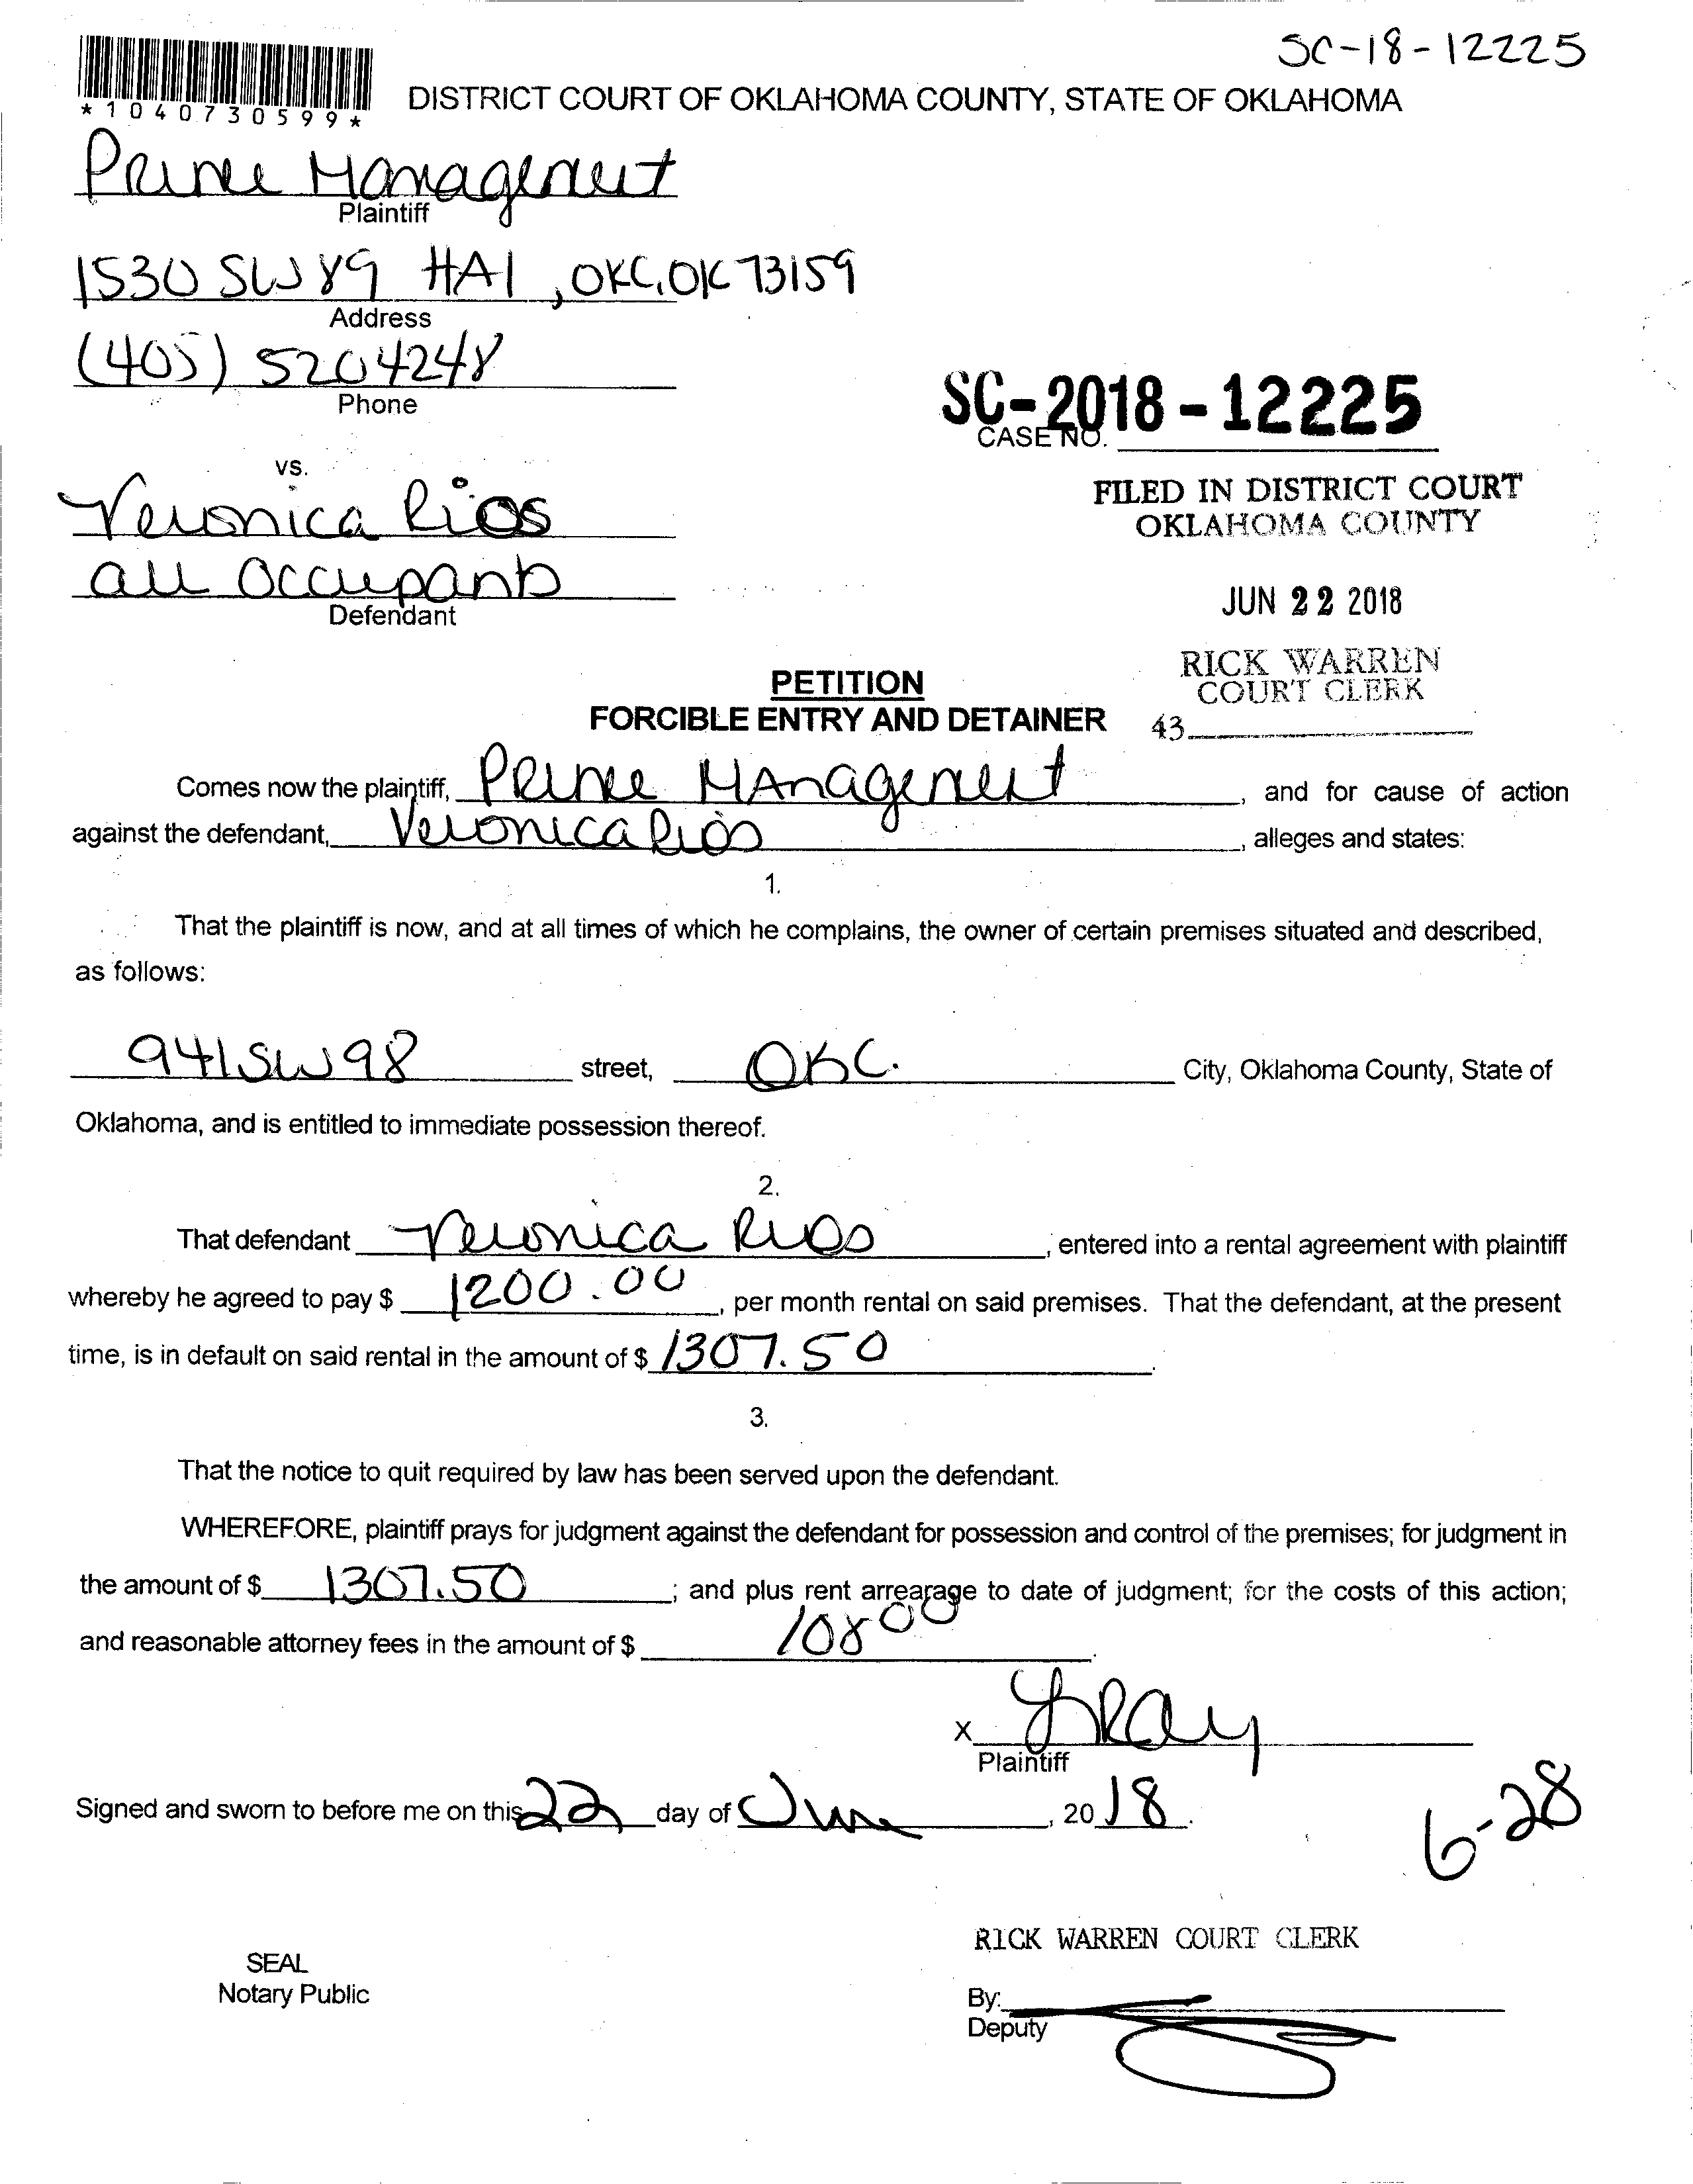 SC-18-12225
*1040730599*
DISTRICT COURT OF OKLAHOMA COUNTY, STATE OF OKLAHOMA
Management
Plaintiff
1530 SW 89 #A1, OKC, OK 73159
Address
(405) 5204248
Phone
SC-2018-12225
CASE NO.
vs.
Veronica Rios
all occupants
Defendant
FILED IN DISTRICT COURT
OKLAHOMA COUNTY
JUN 22 2018
RICK WARREN
COURT CLERK
43
PETITION
FORCIBLE ENTRY AND DETAINER
Comes now the plaintiff, Management, and for cause of action
against the defendant, Veronica Rios, alleges and states:
1.
That the plaintiff is now, and at all times of which he complains, the owner of certain premises situated and described,
as follows:
941 SW 98 street, OKC. City, Oklahoma County, State of
Oklahoma, and is entitled to immediate possession thereof.
2.
That defendant Veronica Rios, entered into a rental agreement with plaintiff
whereby he agreed to pay $ 1200.00, per month rental on said premises. That the defendant, at the present
time, is in default on said rental in the amount of $ 1307.50.
3.
That the notice to quit required by law has been served upon the defendant.
WHEREFORE, plaintiff prays for judgment against the defendant for possession and control of the premises; for judgment in
the amount of $ 1307.50; and plus rent arrearage to date of judgment; for the costs of this action;
and reasonable attorney fees in the amount of $ 108 00.
X
Plaintiff
Signed and sworn to before me on this 22 day of June, 2018.
6-28
RICK WARREN COURT CLERK
SEAL
Notary Public
By:
Deputy